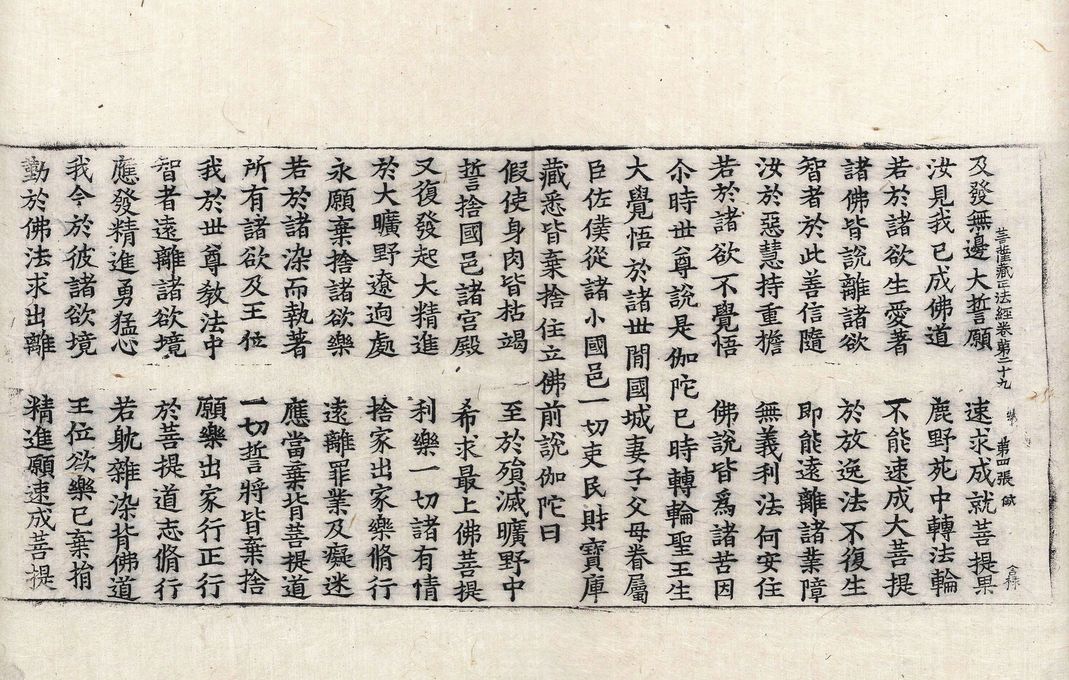 菩薩藏正法經卷第二十九 第四張
及發無邊大誓願 速求成就菩提果
汝見我已成佛道 鹿野苑中轉法輪
若於諸欲生愛著 不能速成大菩提
諸佛皆說離諸欲 於放逸法不復生
智者於此善信隨 即能遠離諸業障
汝於惡慧持重擔 無義利法何安住
若於諸欲不覺悟 佛說皆爲諸苦因
尒時世尊說是伽陀已時轉輪聖王生
大覺悟於諸世閒國城妻子父母眷屬
臣佐僕從諸小國邑一切吏民財寶庫
藏悉皆棄捨住立佛前說伽陀曰
假使身肉皆枯竭 至於殞滅曠野中
誓捨國邑諸宮殿 希求最上佛菩提
又復發起大精進 利樂一切諸有情
於大曠野遼逈處 捨家出家樂脩行
永願棄捨諸欲樂 遠離罪業及癡迷
若於諸染而執著 應當棄背菩提道
所有諸欲及王位 一切誓將皆棄捨
我於世尊教法中 願樂出家行正行
智者遠離諸欲境 於菩提道志脩行
應發精進勇猛心 若躭雜染背佛道
我今於彼諸欲境 王位欲樂已棄捐
勤於佛法求出離 精進願速成菩提